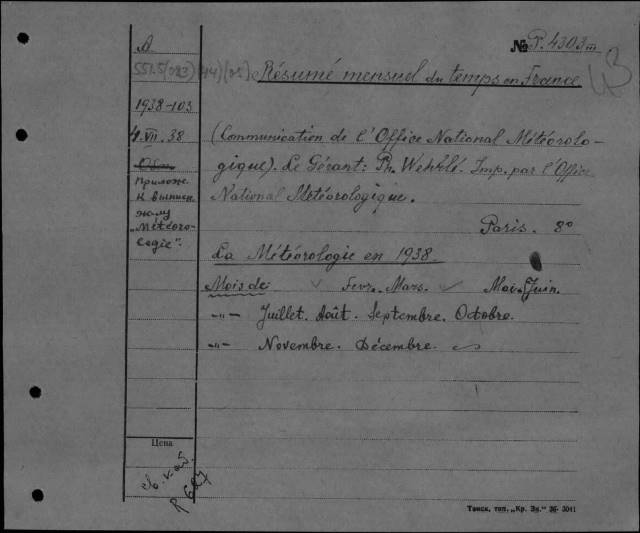 A
№ P. 4303 III
551.5(023)(44)(05)
Résumé mensuel du temps en France
1938-103
4 VII. 38
(Communication de l'Office National Météorolo-
gique). Le Gérant: Ph. Wehrlé. Imp. par l'Office
National Météorologique.
Прилож.
к выписк.
жалу
„Météoro-
logie".
Paris. 8°
La Météorologie en 1938
Mois de Fevr. Mars. Mai. Juin.
-"- Juillet. Août. Septembre. Octobre.
-"- Novembre. Décembre.
Цена
Томск, тип. „Кр. Зн." 36- 3041